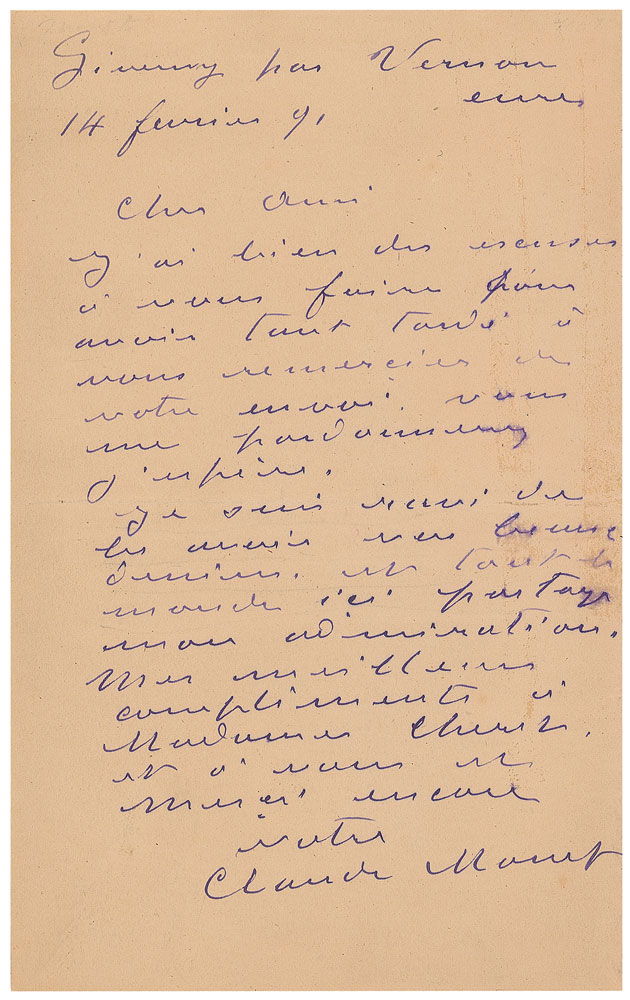 Giverny par Vernon
eure
14 fevrier 91
Cher Ami
J'ai bien des escuses
à vous faire pour
avoir tant tardé à
vous remercier de
votre envoi. vous
me pardonnerez
j'espère.
Je suis ravi de
les avoir ces beaux
dessins. et tout le
monde ici partage
mon admiration.
Mes meilleurs
compliments à
Madame Cheret.
et à vous et
merci encore
votre
Claude Monet